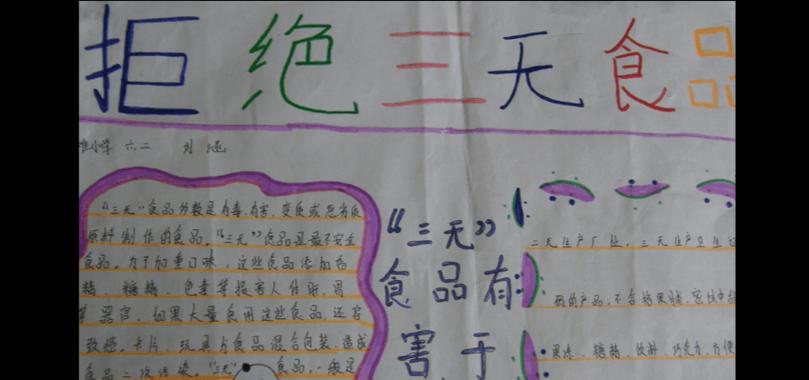 拒绝三天食品
小学 六二 刘
“三无”食品多数是有毒、有害、变质或
原料制作的食品。“三无”食品是最不安全
食品。为了加重口味，这些食品添加香
精、糖精、色素等损害人体肝、胃
等器官，如果大量食用这些食品，还容
致癌。卡片、玩具与食品混合包装，造成
食品二次污染。“三无”食品，一般是
“三无”
食品有
害于
二无生产厂址，三无生产卫生
的产品，不合格
果冻、糖精、饮料、巧克力、方便